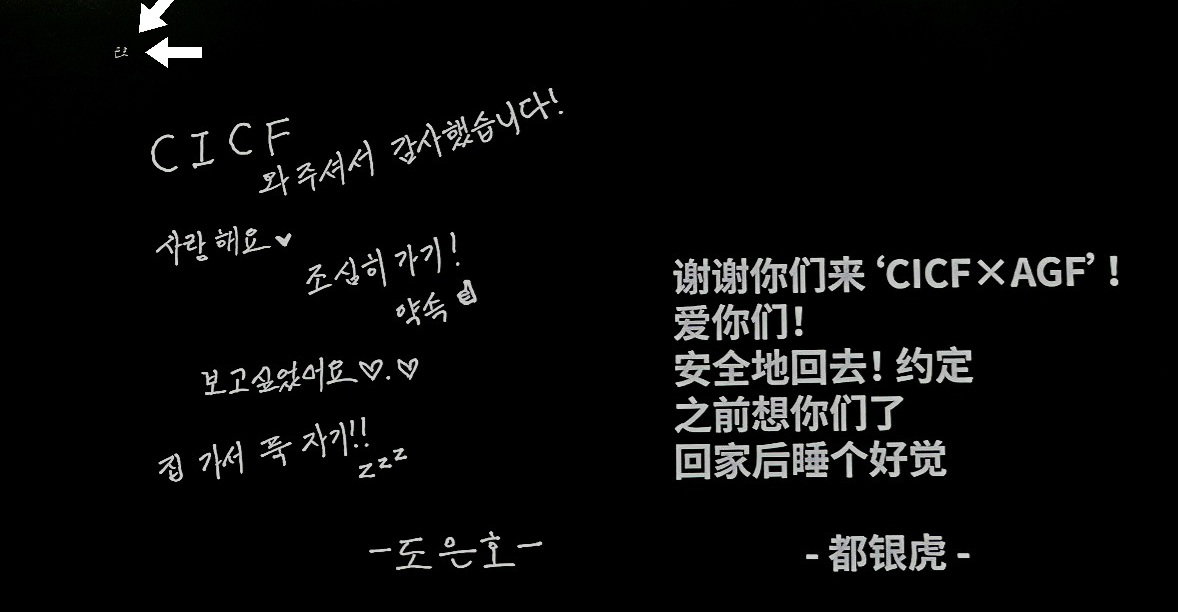 CICF
와주셔서 감사했습니다!
사랑해요♥
조심히 가기!
약속
보고싶었어요♡.♡
집 가서 푹 자기!!
zzz
-도은호-
谢谢你们来‘CICF×AGF’！
爱你们！
安全地回去！约定
之前想你们了
回家后睡个好觉
- 都银虎 -